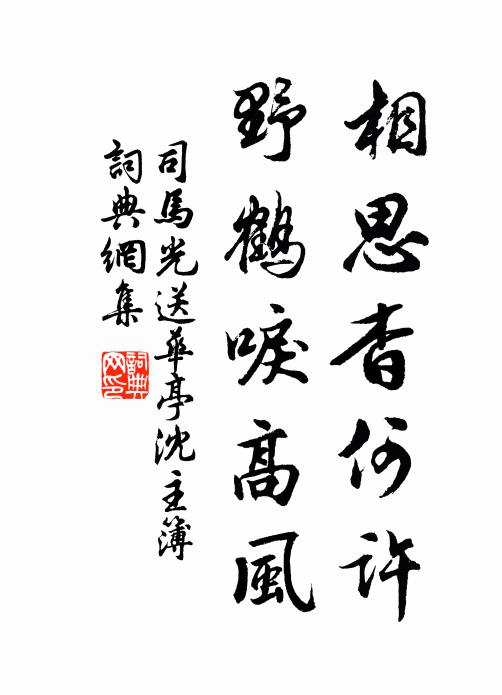 相思杳何許
野鶴唳高風
司馬光送華亭沈主簿
詞典網集
詞典網印